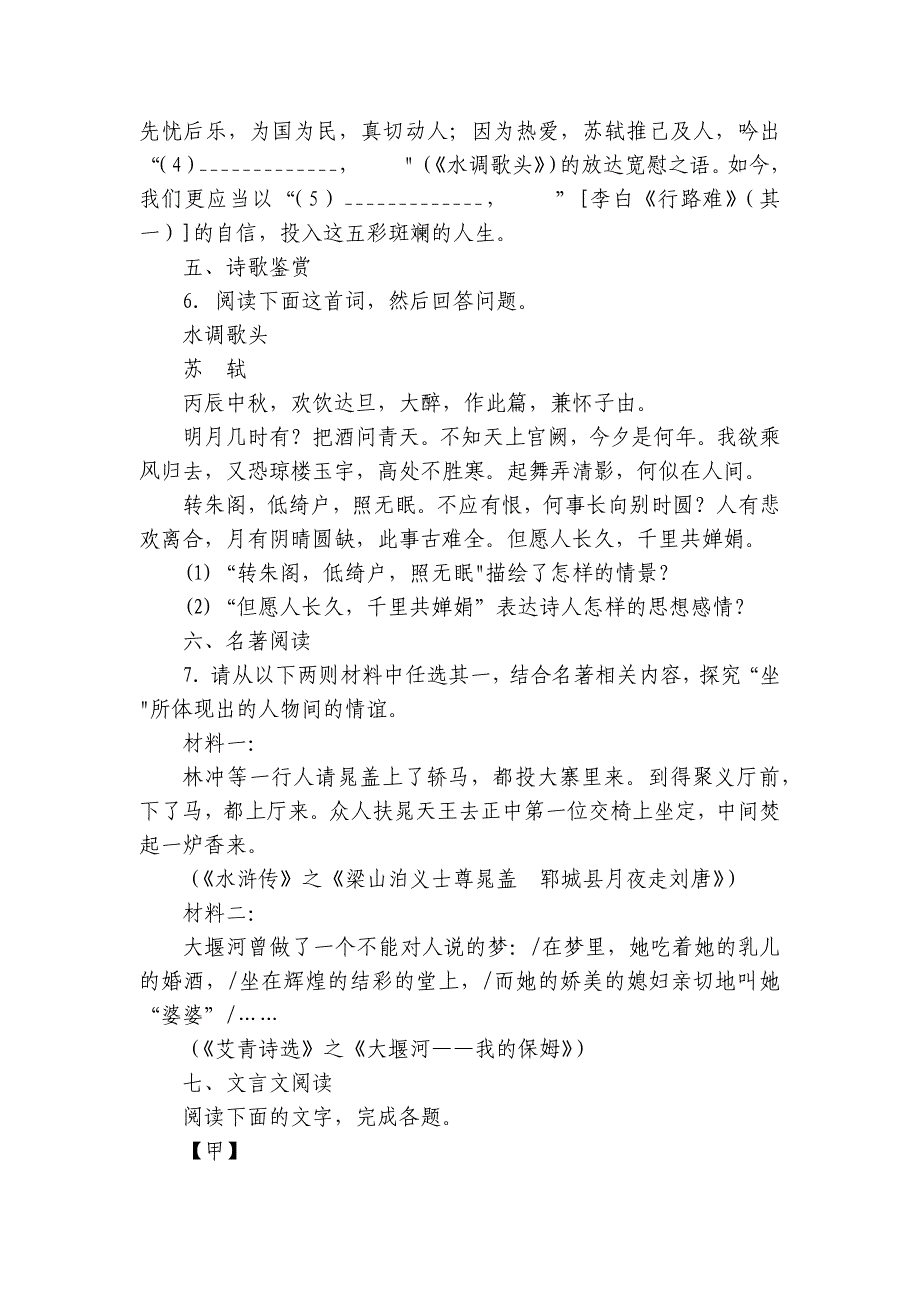 先忧后乐，为国为民，真切动人；因为热爱，苏轼推己及人，吟出
“（4）_____________，　　　"（《水调歌头》）的放达宽慰之语。如今，
我们更应当以“（5）_____________，　　　”[李白《行路难》（其
一）]的自信，投入这五彩斑斓的人生。
五、诗歌鉴赏
6．阅读下面这首词，然后回答问题。
水调歌头
苏　轼
丙辰中秋，欢饮达旦，大醉，作此篇，兼怀子由。
明月几时有？把酒问青天。不知天上官阙，今夕是何年。我欲乘
风归去，又恐琼楼玉宇，高处不胜寒。起舞弄清影，何似在人间。
转朱阁，低绮户，照无眠。不应有恨，何事长向别时圆？人有悲
欢离合，月有阴晴圆缺，此事古难全。但愿人长久，千里共婵娟。
(1)“转朱阁，低绮户，照无眠"描绘了怎样的情景？
(2)“但愿人长久，千里共婵娟”表达诗人怎样的思想感情？
六、名著阅读
7．请从以下两则材料中任选其一，结合名著相关内容，探究“坐
"所体现出的人物间的情谊。
材料一：
林冲等一行人请晁盖上了轿马，都投大寨里来。到得聚义厅前，
下了马，都上厅来。众人扶晁天王去正中第一位交椅上坐定，中间焚
起一炉香来。
（《水浒传》之《梁山泊义士尊晁盖　郓城县月夜走刘唐》）
材料二：
大堰河曾做了一个不能对人说的梦：/在梦里，她吃着她的乳儿
的婚酒，/坐在辉煌的结彩的堂上，/而她的娇美的媳妇亲切地叫她
“婆婆”/……
（《艾青诗选》之《大堰河——我的保姆》）
七、文言文阅读
阅读下面的文字，完成各题。
【甲】